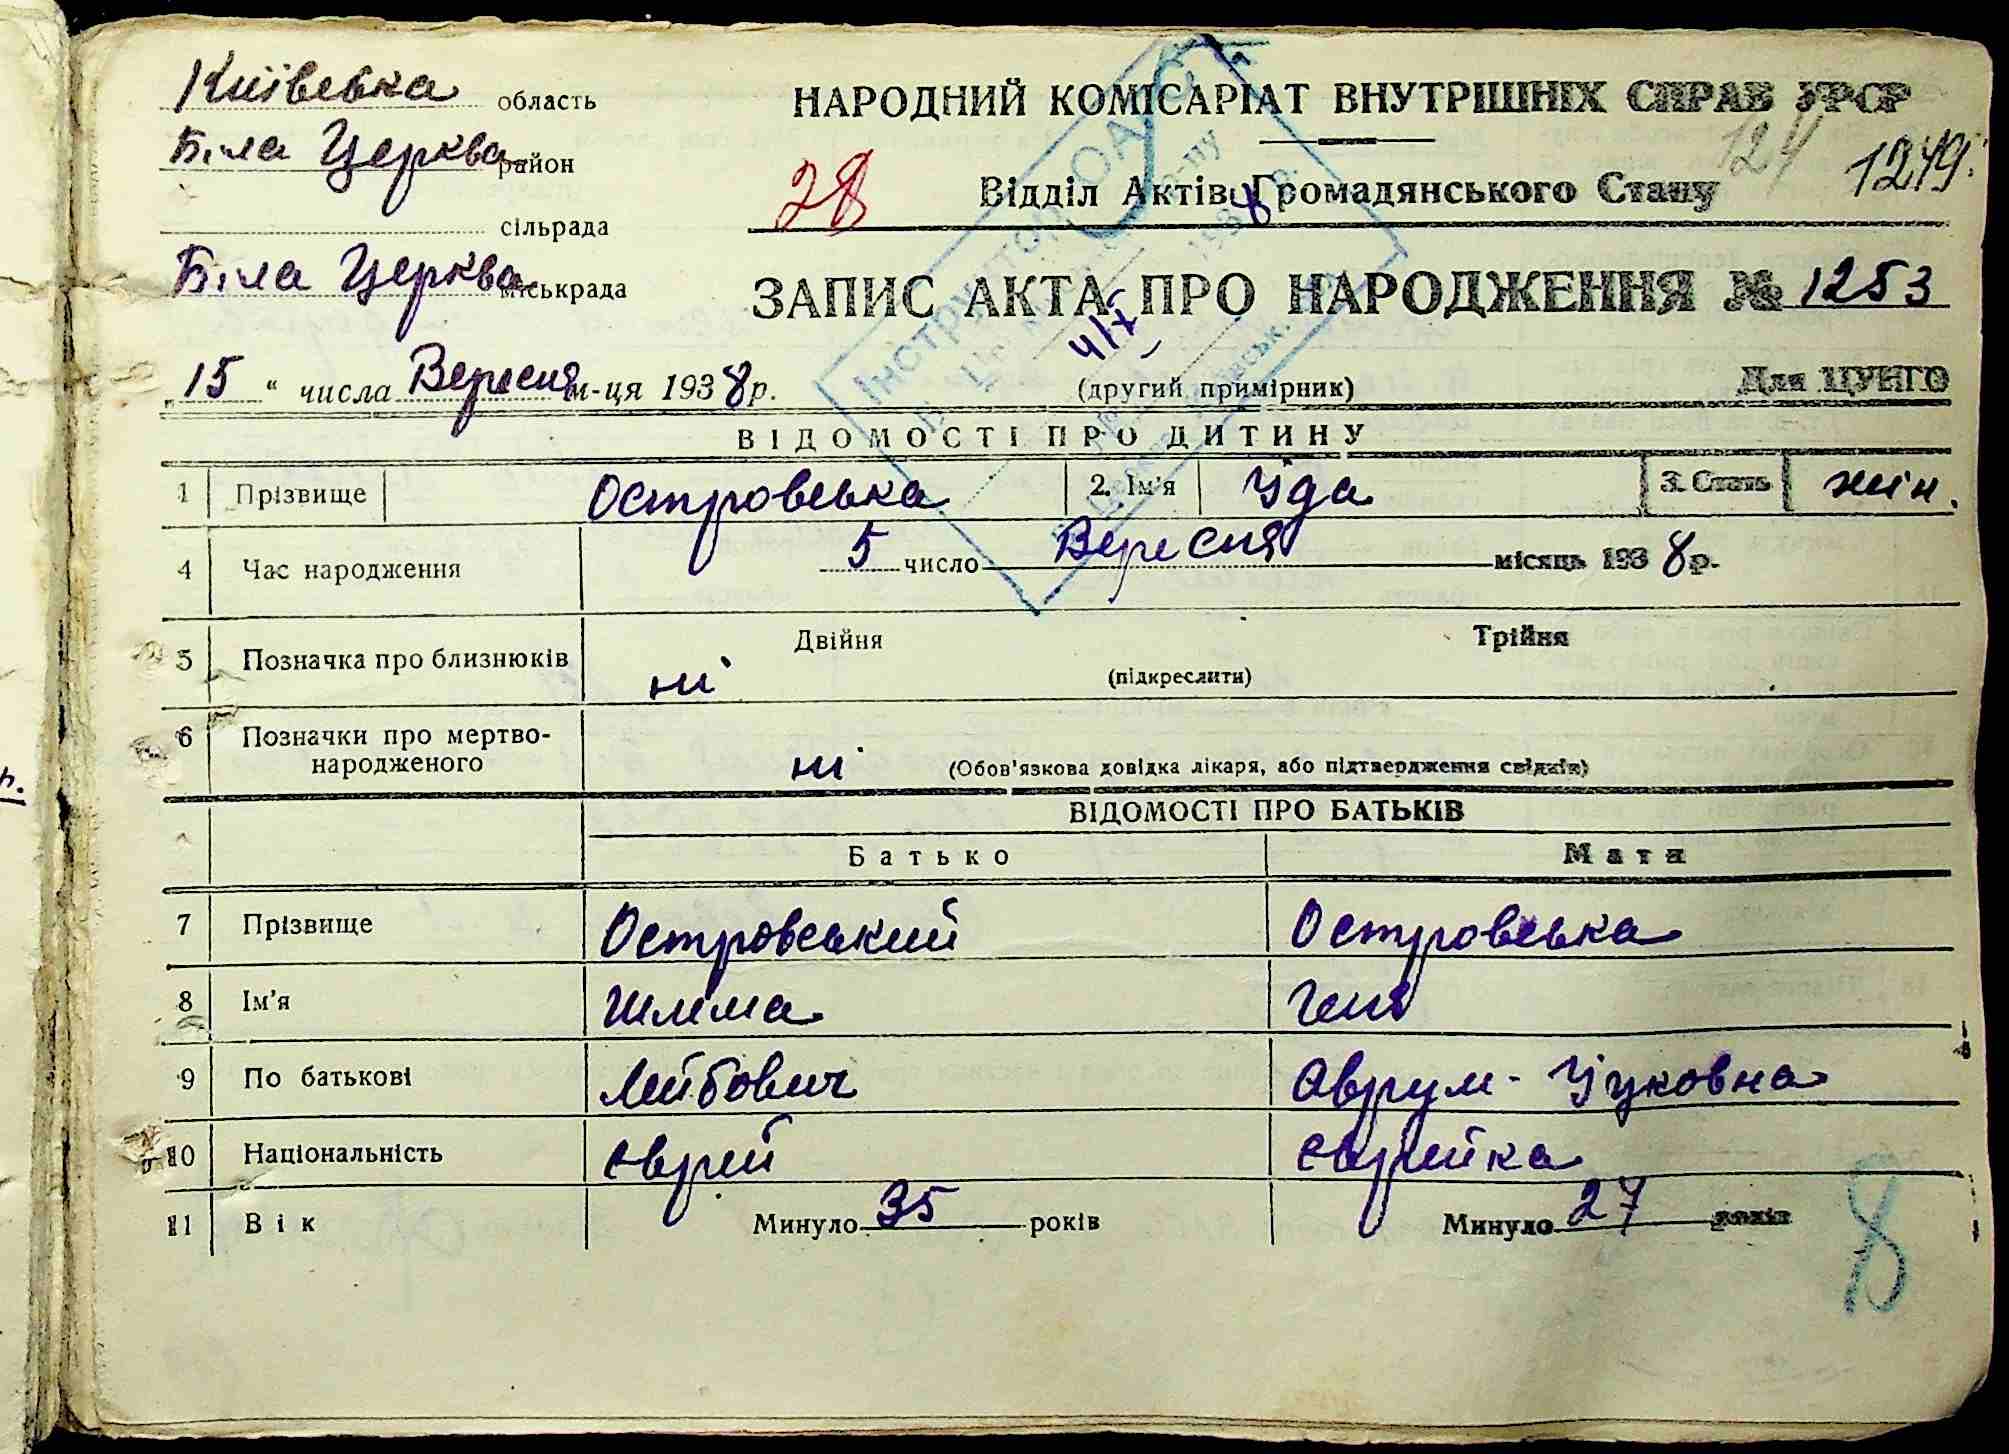 Київська область
Біла Церква район
сільрада
Біла Церква міськрада
НАРОДНИЙ КОМІСАРІАТ ВНУТРІШНІХ СПРАВ УРСР
124 1249.
28
Відділ Актів Громадянського Стану
ЗАПИС АКТА ПРО НАРОДЖЕННЯ № 1253
4/X
„15“ числа Вересня м-ця 1938 р.
(другий примірник)
Для ЦУНГО
Інструктор
ВІДОМОСТІ ПРО ДИТИНУ
1 Прізвище Островська 2. Ім'я Іда 3. Стать жін.
4 Час народження 5 число Вересня місяць 1938 р.
5 Позначка про близнюків ні Двійня Трійня
(підкреслити)
6 Позначки про мертво-
народженого ні (Обов'язкова довідка лікаря, або підтвердження свідків)
ВІДОМОСТІ ПРО БАТЬКІВ
Батько Мати
7 Прізвище Островський Островська
8 Ім'я Шлема Геня
9 По батькові Лейбович Аврум-Іцковна
10 Національність єврей єврейка
11 Вік Минуло 35 років Минуло 27 років
8